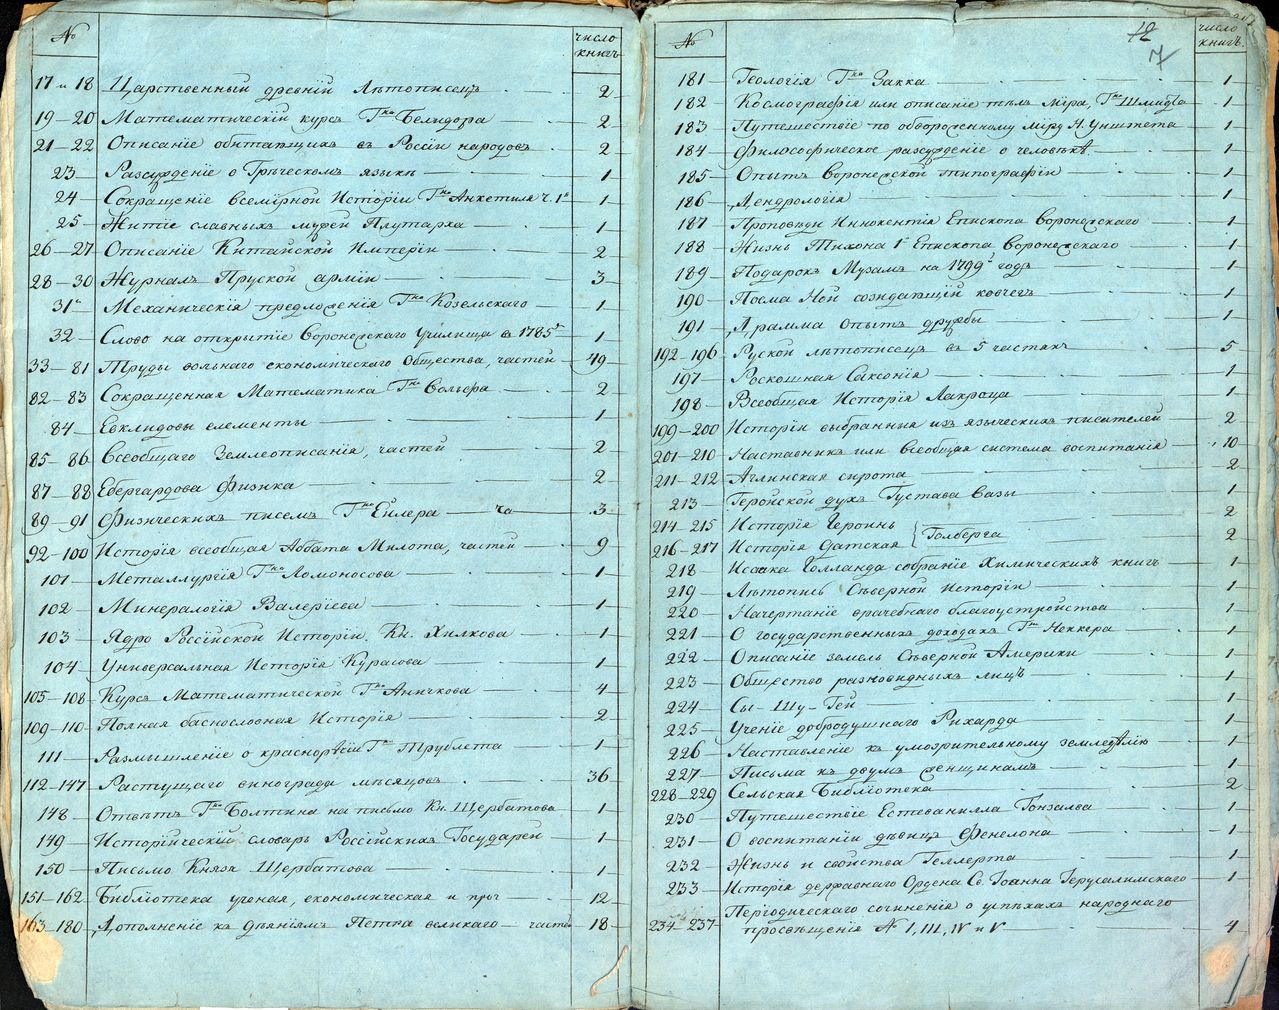 № число книгъ
17 и 18 Царственный древнїй Лѣтописецъ 2
19-20 Математическїй курсъ Гна Белидора 2
21-22 Описанїе обитающихъ въ Россїи народовъ 2
23 Разсужденїе о Грѣческомъ языкѣ 1
24 Сокращенїе всемїрной Исторїи Гна Анкетиля ч. 1я 1
25 Житїе славныхъ мужей Плутарха 1
26-27 Описанїе Китайской Имперїи 2
28-30 Журналъ Пруской армїи 3
31 Механическїя предложенїя Гна Козельскаго 1
32 Слово на открытїе Воронежскаго Училища в 1785 1
33-81 Труды вольнаго економическаго Общества, частей 49
82-83 Сокращенная Математика Гна Вольфа 2
84 Евклидовы елементы 1
85-86 Всеобщаго Землеописанїя, частей 2
87-88 Ебергардова Физика 2
89-91 Физическихъ писемъ Гна Ейлера ча 3
92-100 Исторїя всеобщая Аббата Милота, частей 9
101 Металлургїя Гна Ломоносова 1
102 Минералогїя Валерїева 1
103 Ядро Россїйской Исторїи Кн. Хилкова 1
104 Универсальная Исторїя Курасова 1
105-108 Курсъ Математической Гна Аничкова 4
109-110 Полная баснословная Исторїя 2
111 Размышленїе о краснорѣчїи Гна Трублета 1
112-147 Растущаго винограда мѣсяцовъ 36
148 Отвѣтъ Гна Болтина на письмо Кн. Щербатова 1
149 Исторїческїй словарь Россїйскихъ Государей 1
150 Письмо Князя Щербатова 1
151-162 Библїотека ученая, економическая и проч 12
163-180 Дополненїе къ дѣянїямъ Петра великаго частей 18
№ 12 7 число книгъ.
181 Теологїя Гна Закка 1
182 Космографїя или описанїе тѣлъ мїра, Гна Шмидта 1
183 Путешествїе по обвороженному мїру Н. Унштета 1
184 Философическое разсужденїе о человѣкѣ 1
185 Опытъ Воронежской типографїи 1
186 Дендрологїя 1
187 Проповѣди Иннокентїя Епископа Воронежскаго 1
188 Жизнь Тихона 1 Епископа Воронежскаго 1
189 Подарокъ Музамъ на 1799 годъ 1
190 Поема Ной созидающїй ковчегъ 1
191 Драмма опытъ дружбы 1
192-196 Руской лѣтописецъ въ 5 частяхъ 5
197 Роскошная Саксонїя 1
198 Всеобщая Исторїя Лакроца 1
199-200 Исторїи выбранныя изъ языческихъ писателей 2
201-210 Наставникъ или всеобщая система воспитанїя 10
211-212 Аглинская сирота 2
213 Геройской духъ Густава Вазы 1
214-215 Исторїя Героинь 2
216-217 Исторїя Датская { Голберга 2
218 Исаака Голланда собранїе Химическихъ книгъ 1
219 Лѣтопись Сѣверной Исторїи 1
220 Начертанїе врачебнаго благоустройства 1
221 О государственныхъ доходахъ Гна Неккера 1
222 Описанїе земель Сѣверной Америки 1
223 Общество разновидныхъ лицъ 1
224 Сы-Шу-Гей 1
225 Ученїе добродушнаго Рихарда 1
226 Наставленїе къ умозрительному земледѣлїю 1
227 Письма къ двумъ женщинамъ 1
228-229 Сельская Библїотека 2
230 Путешествїе Естеванилла Гонзалва 1
231 О воспитанїи дѣвицъ Фенелона 1
232 Жизнь и свойства Геллерта 1
233 Исторїя державнаго Ордена Св. Іоанна Іерусалимскаго 1
Перїодическаго сочиненїя о успѣхахъ народнаго
234-237 просвѣщенїя № I, III, IV и V 4